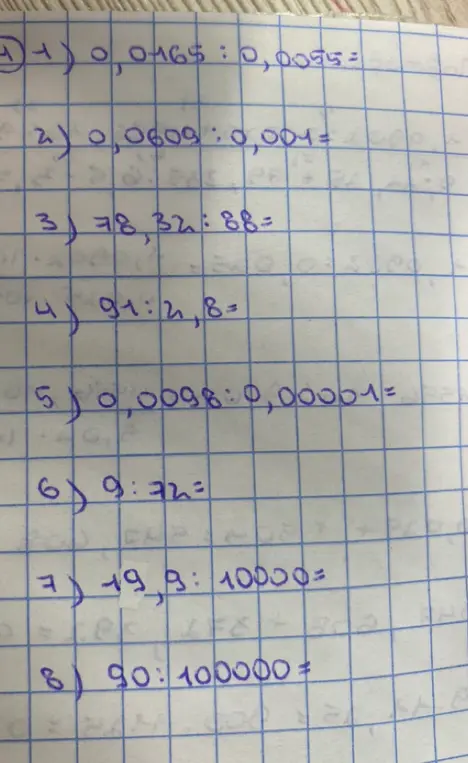 1 1) 0,0165 : 0,0055=
2) 0,0609 : 0,001=
3) 78,32 : 88=
4) 91 : 2,8=
5) 0,0098 : 0,00001=
6) 9 : 72=
7) 19,9 : 10000=
8) 90 : 100000=